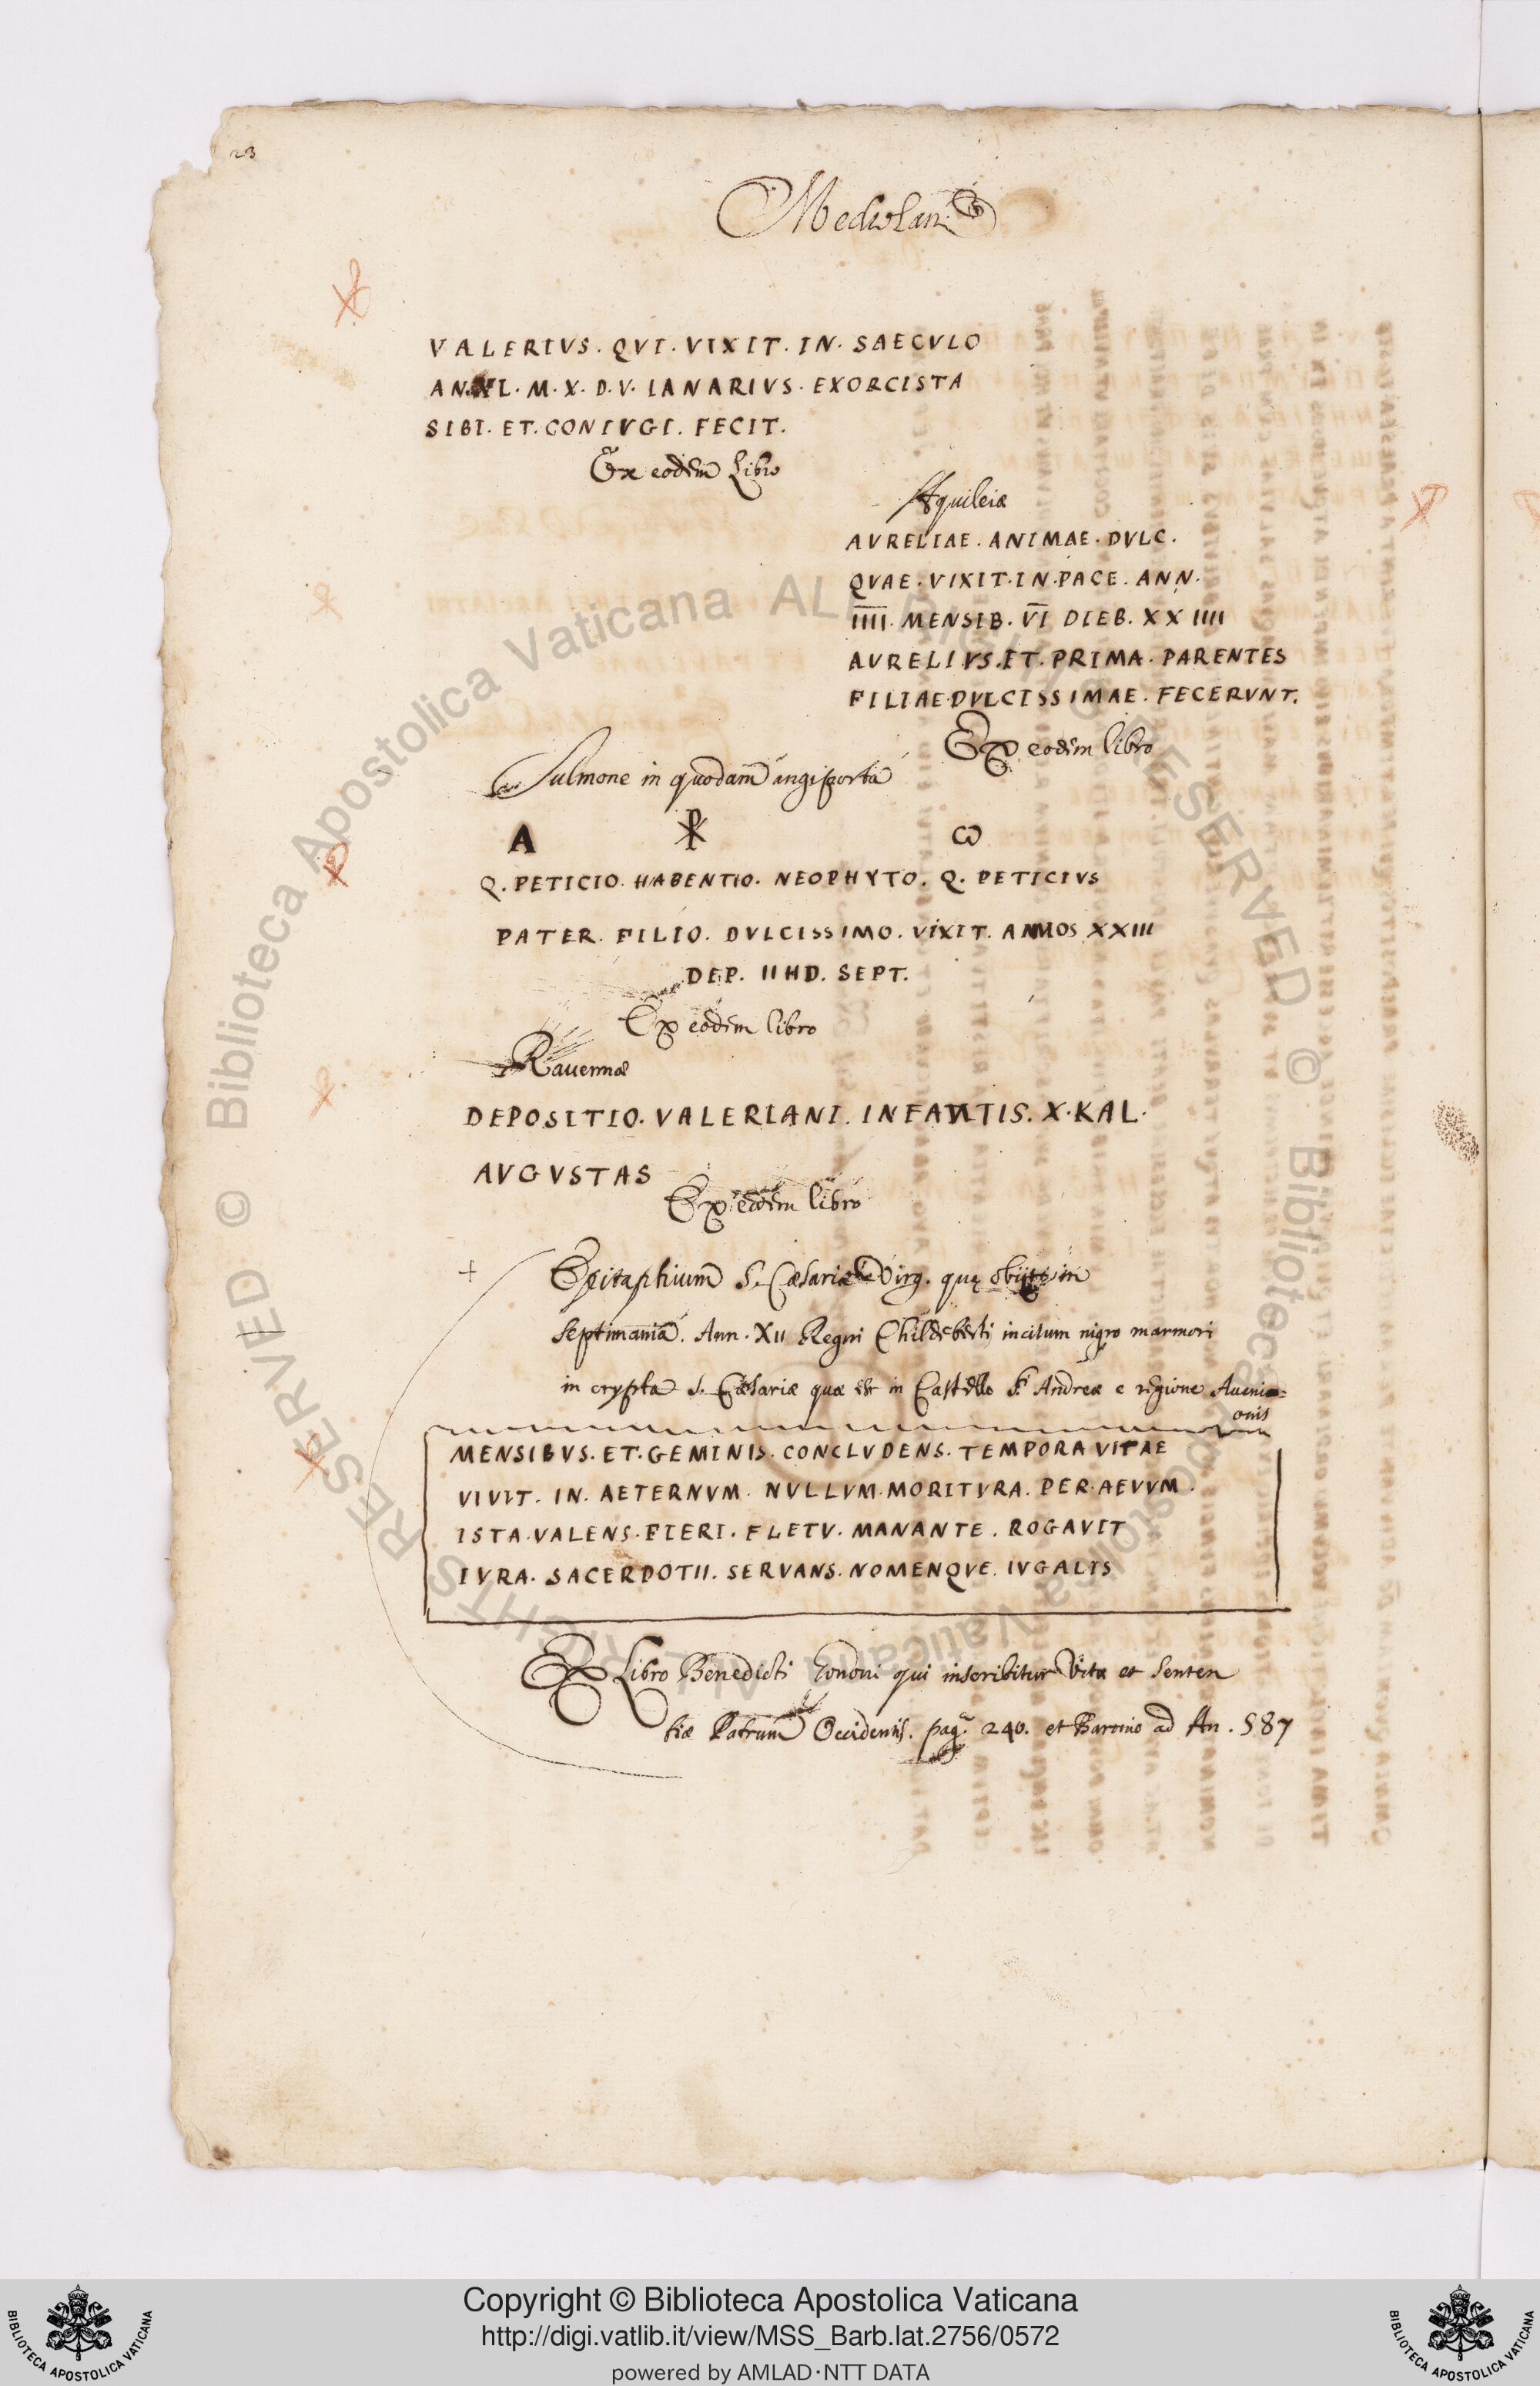 23
Mediolani
VALERIVS. QVI. VIXIT. IN. SAECVLO
AN.XL. M. X. D. V. IANARIVS. EXORCISTA
SIBI. ET. CONIVGI. FECIT.
Ex eodem Libro
Aquileiæ
AVRELIAE. ANIMAE. DVLC.
QVAE. VIXIT. IN. PACE. ANN.
IIII. MENSIB. VI DIEB. XXIIII
AVRELIVS. ET. PRIMA. PARENTES
FILIAE. DVLCISSIMAE. FECERVNT.
Ex eodem libro
Sulmone in quodam angiporta
A ☧ ω
Q. PETICIO. HABENTIO. NEOPHYTO. Q. PETICIVS
PATER. FILIO. DVLCISSIMO. VIXIT. ANNOS XXIII
DEP. IIHD. SEPT.
Ex eodem libro
Rauennæ
DEPOSITIO. VALERIANI. INFANTIS. X. KAL.
AVGVSTAS
Ex eodem libro
+ Epitaphium S. Cæsariæ Virg. quę obijt in
Septimania. Ann. XII Regni Childeberti incisum nigro marmori
in crypta S. Cæsariæ quæ est in Castello S. Andreæ e regione Auenionis
MENSIBVS. ET. GEMINIS. CONCLVDENS. TEMPORA VITAE
VIVIT. IN. AETERNVM. NVLLVM. MORITVRA. PER. AEVVM.
ISTA. VALENS. FIERI. FLETV. MANANTE. ROGAVIT
IVRA. SACERDOTII. SERVANS. NOMENQVE. IVGALIS
Ex Libro Benedicti Gononi qui inscribitur Vitæ et Senten
tiæ Patrum Occidentis. pag. 240. et Baronio ad An. 587
Copyright © Biblioteca Apostolica Vaticana
http://digi.vatlib.it/view/MSS_Barb.lat.2756/0572
powered by AMLAD·NTT DATA
BIBLIOTECA APOSTOLICA VATICANA
BIBLIOTECA APOSTOLICA VATICANA